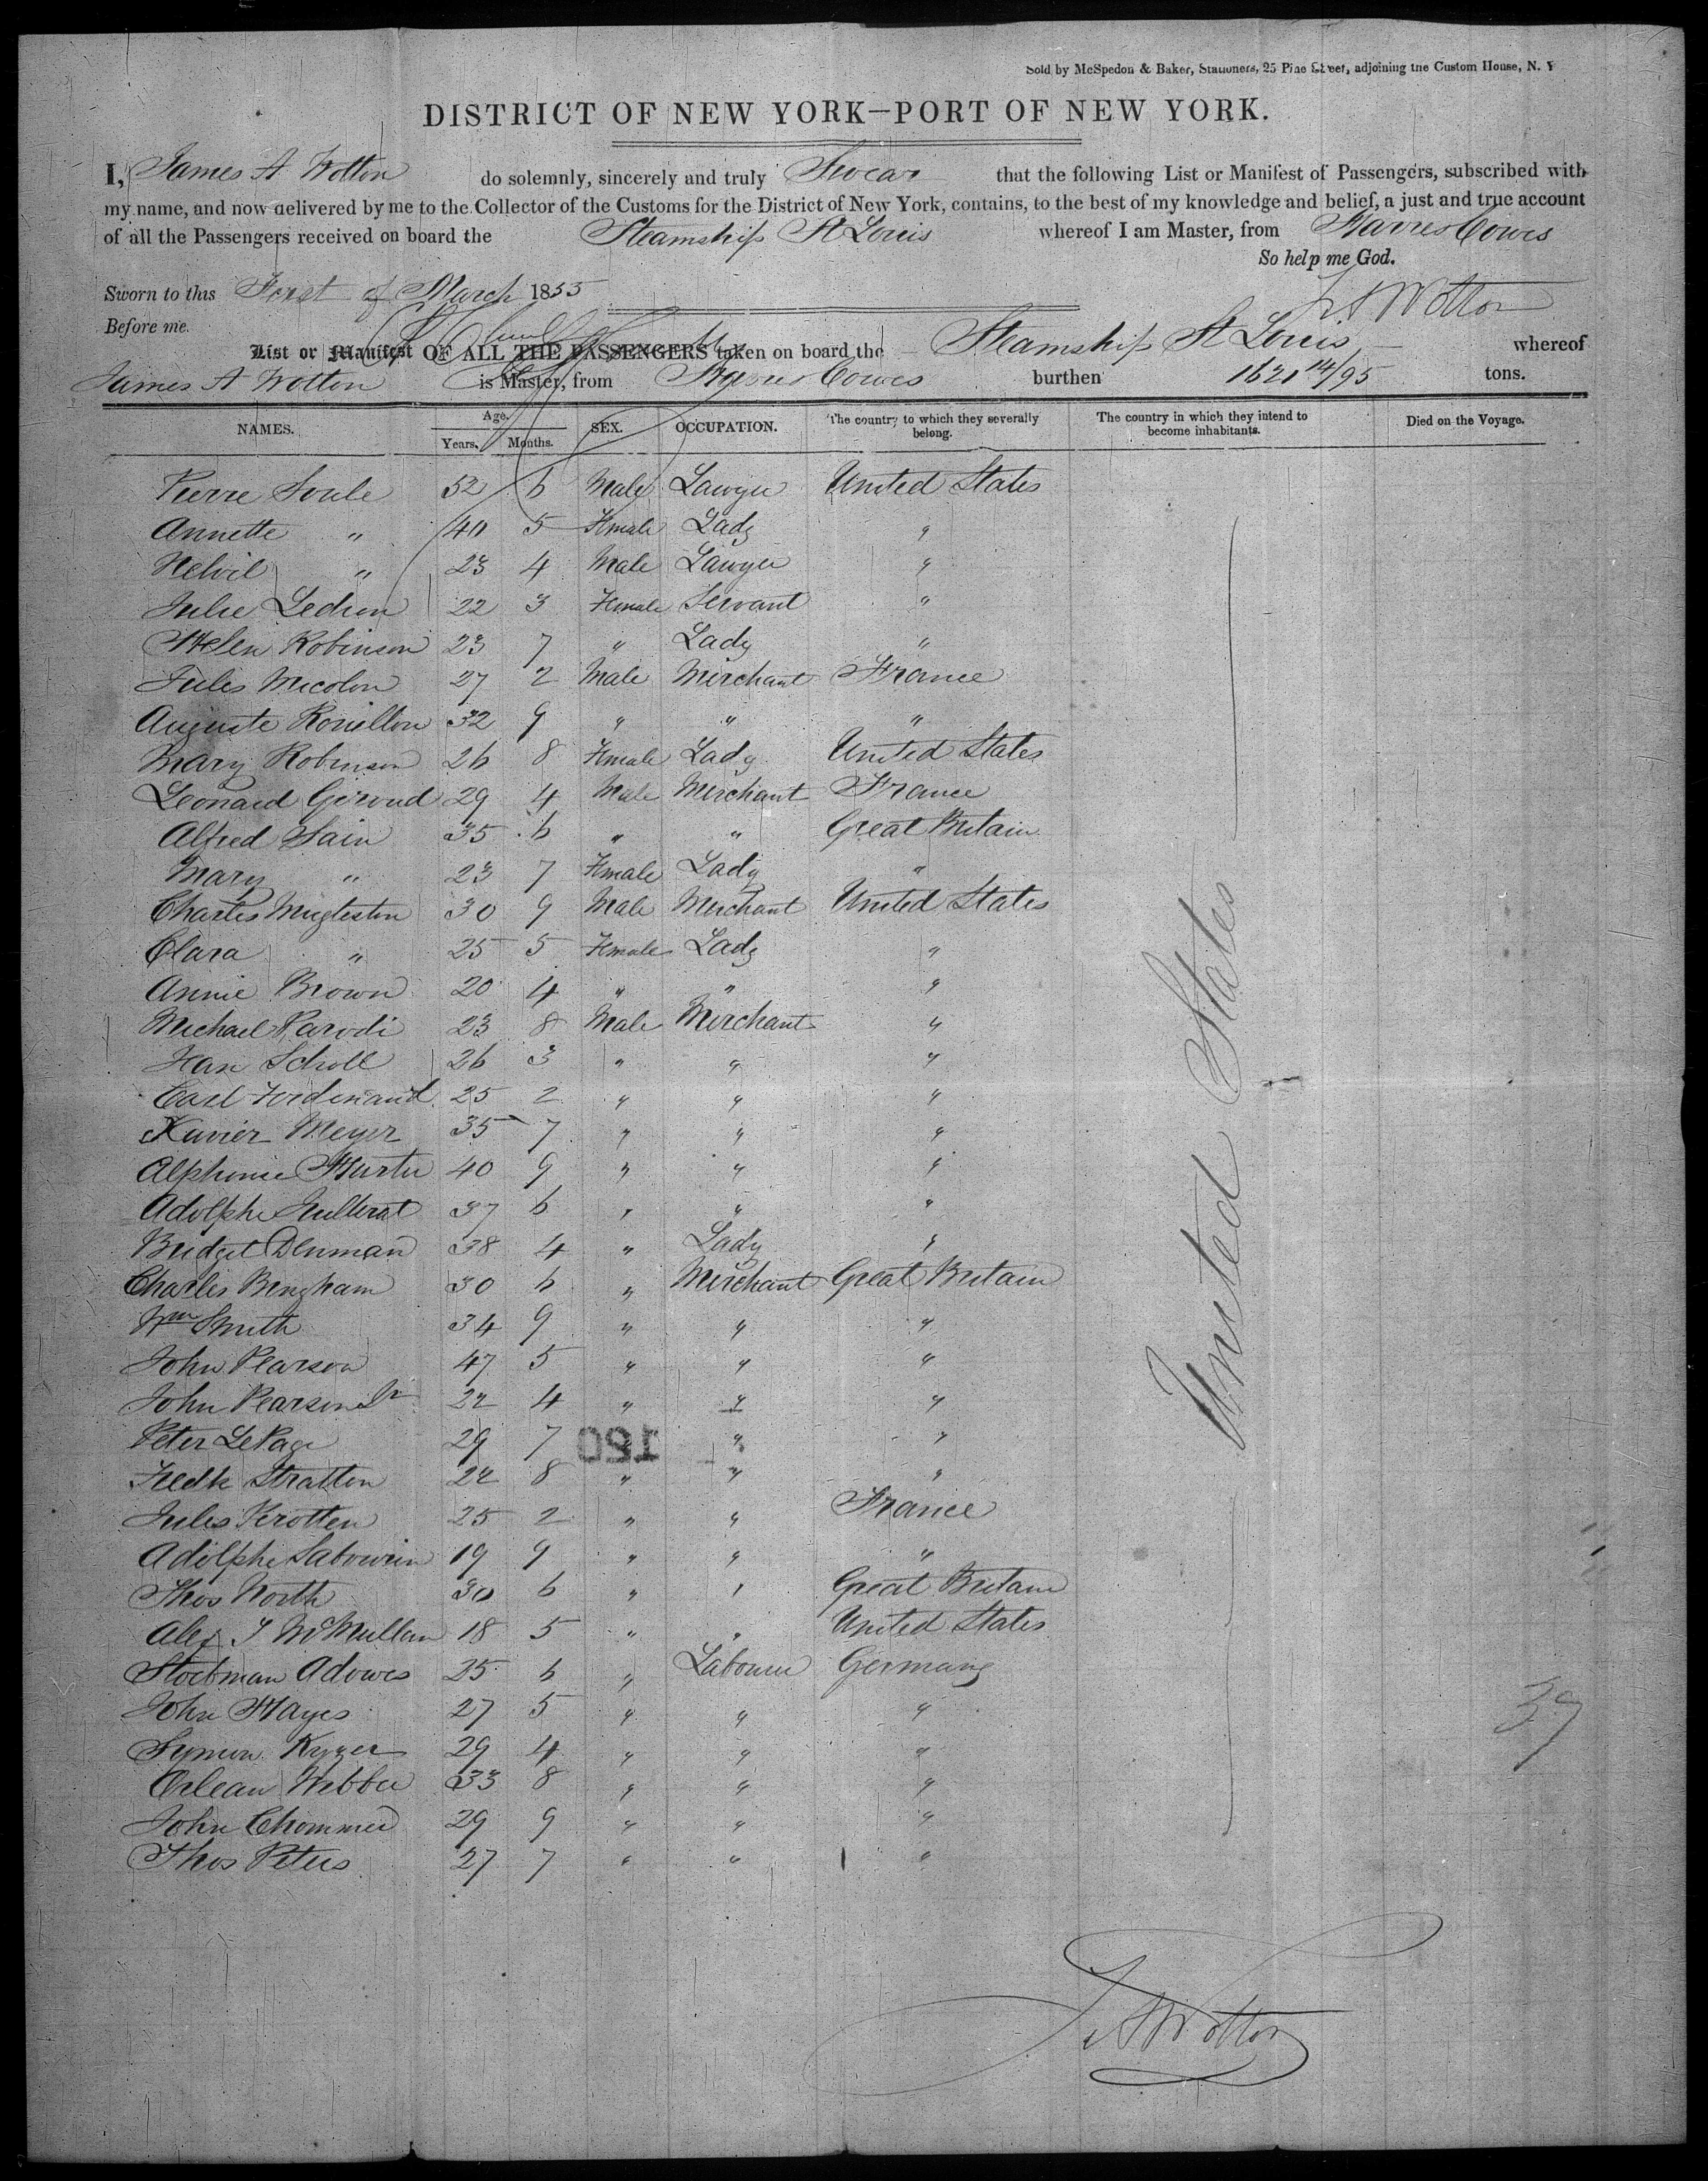 Sold by McSpedon & Baker, Stationers, 25 Pine Street, adjoining the Custom House, N. Y
DISTRICT OF NEW YORK—PORT OF NEW YORK.
I, James A Wotton do solemnly, sincerely and truly Swear that the following List or Manifest of Passengers, subscribed with
my name, and now delivered by me to the Collector of the Customs for the District of New York, contains, to the best of my knowledge and belief, a just and true account
of all the Passengers received on board the Steamship St Louis whereof I am Master, from Havre & Cowes
So help me God.
Sworn to this First of March 1855 J A Wotton
Before me
List or Manifest OF ALL THE PASSENGERS taken on board the Steamship St Louis whereof
James A Wotton is Master, from Havre & Cowes burthen 1621 14/95 tons.
NAMES. Age. Years. Months. SEX. OCCUPATION. The country to which they severally belong. The country in which they intend to become inhabitants. Died on the Voyage.
Pierre Soule 52 6 Male Lawyer United States
Annette " 40 5 Female Lady "
Nelvil " 23 4 Male Lawyer "
Julie Ledron 22 3 Female Servant "
Helen Robinson 23 7 " Lady "
Jules Micolon 27 2 Male Merchant France
Auguste Rouillon 32 9 " " "
Mary Robinson 26 8 Female Lady United States
Leonard Giroud 29 4 Male Merchant France
Alfred Sain 35 6 " " Great Britain
Mary " 23 7 Female Lady "
Charles Mugleston 30 9 Male Merchant United States
Clara " 25 5 Female Lady "
Annie Brown 20 4 " " "
Michael Parodi 23 8 Male Merchant "
Scholl 26 3 " " "
Carl Ferdinand 25 2 " " "
Xavier Meyer 35 7 " " "
Alphonse Hurter 40 9 " " "
Adolphe 37 6 " " "
Bridget Denman 38 4 " Lady "
Charles Bingham 30 6 " Merchant Great Britain
Wm Smith 34 9 " " "
John Pearson 47 5 " " "
John Pearson Jr 22 4 " " "
Peter LePage 29 7 " "
Fredk Stratton 22 8 " " "
Jules Kerotten 25 2 " " France
Adolphe Sabourin 19 9 " " "
Thos North 30 6 " " Great Britain
Alex J McMullan 18 5 " " United States
Stockman Adowes 25 6 " Labourer Germany
John Hayes 27 5 " " "
Symon Kyzer 29 4 " " "
Orlean Webber 33 8 " " "
John Chommer 29 9 " " "
Thos Peters 27 7 " " "
United States
180
37
J A Wotton